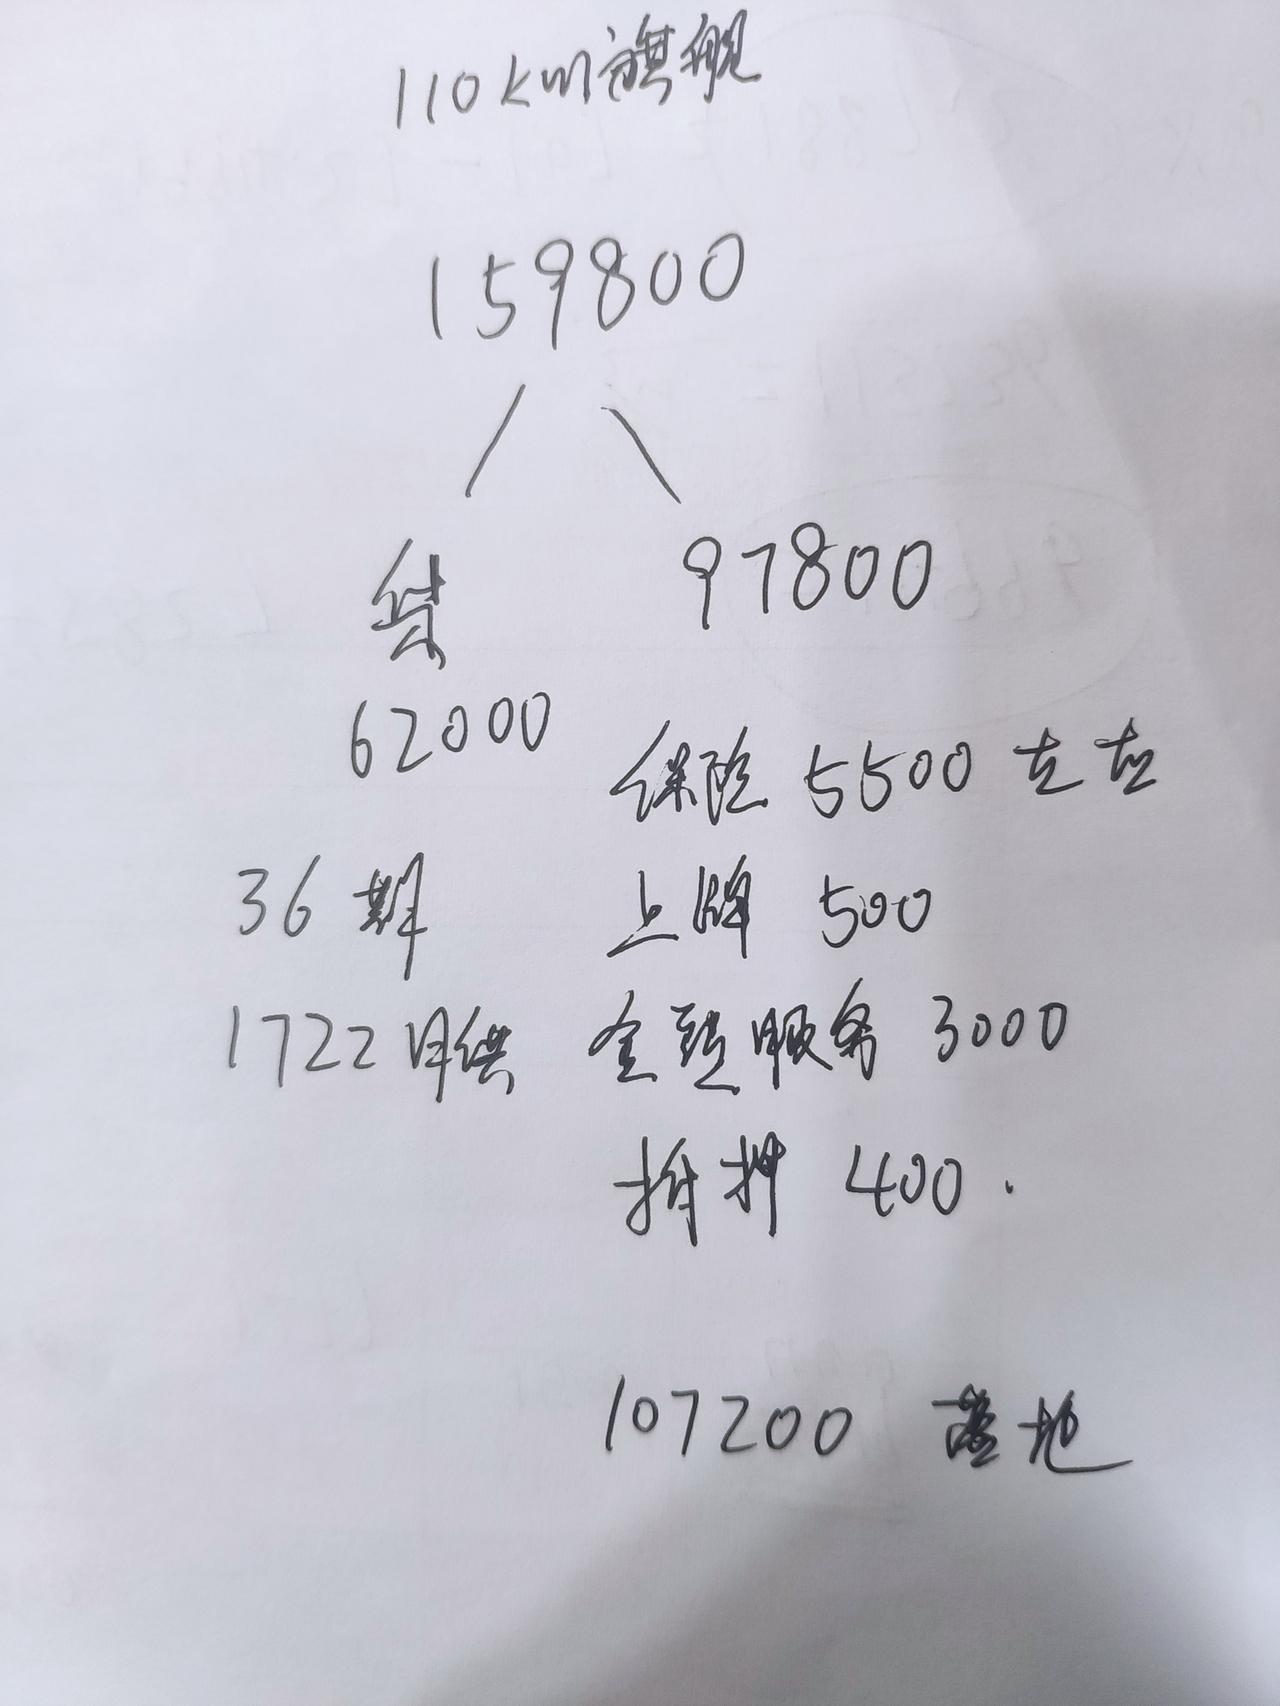 110km旗舰
159800
贷 97800
62000
保险 5500 左右
36期 上牌 500
1722月供 金融服务 3000
拆押 400.
107200 落地